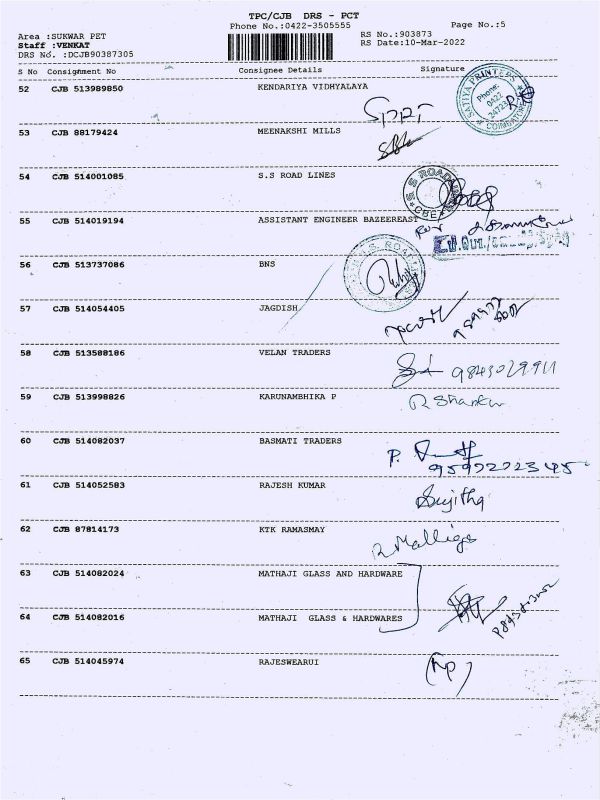 TPC/CJB DRS - PCT
Phone No.:0422-3505555
Page No.:5
Area :SUKWAR PET
RS No.:903873
Staff :VENKAT
RS Date:10-Mar-2022
DRS No. :DCJB90387305
S No Consignment No Consignee Details Signature
52 CJB 513989850 KENDARIYA VIDHYALAYA
SATHYA PRINTERS
Phone:
0422
COIMBATORE
53 CJB 88179424 MEENAKSHI MILLS
54 CJB 514001085 S.S ROAD LINES
S S ROAD
CBE
55 CJB 514019194 ASSISTANT ENGINEER BAZEEREAST
56 CJB 513737086 BNS
57 CJB 514054405 JAGDISH
58 CJB 513588186 VELAN TRADERS
9843029911
59 CJB 513998826 KARUNAMBHIKA P
R Shankar
60 CJB 514082037 BASMATI TRADERS
P.
61 CJB 514052583 RAJESH KUMAR
Sujitha
62 CJB 87814173 KTK RAMASMAY
R Malliga
63 CJB 514082024 MATHAJI GLASS AND HARDWARE
64 CJB 514082016 MATHAJI GLASS & HARDWARES
65 CJB 514045974 RAJESWEARUI